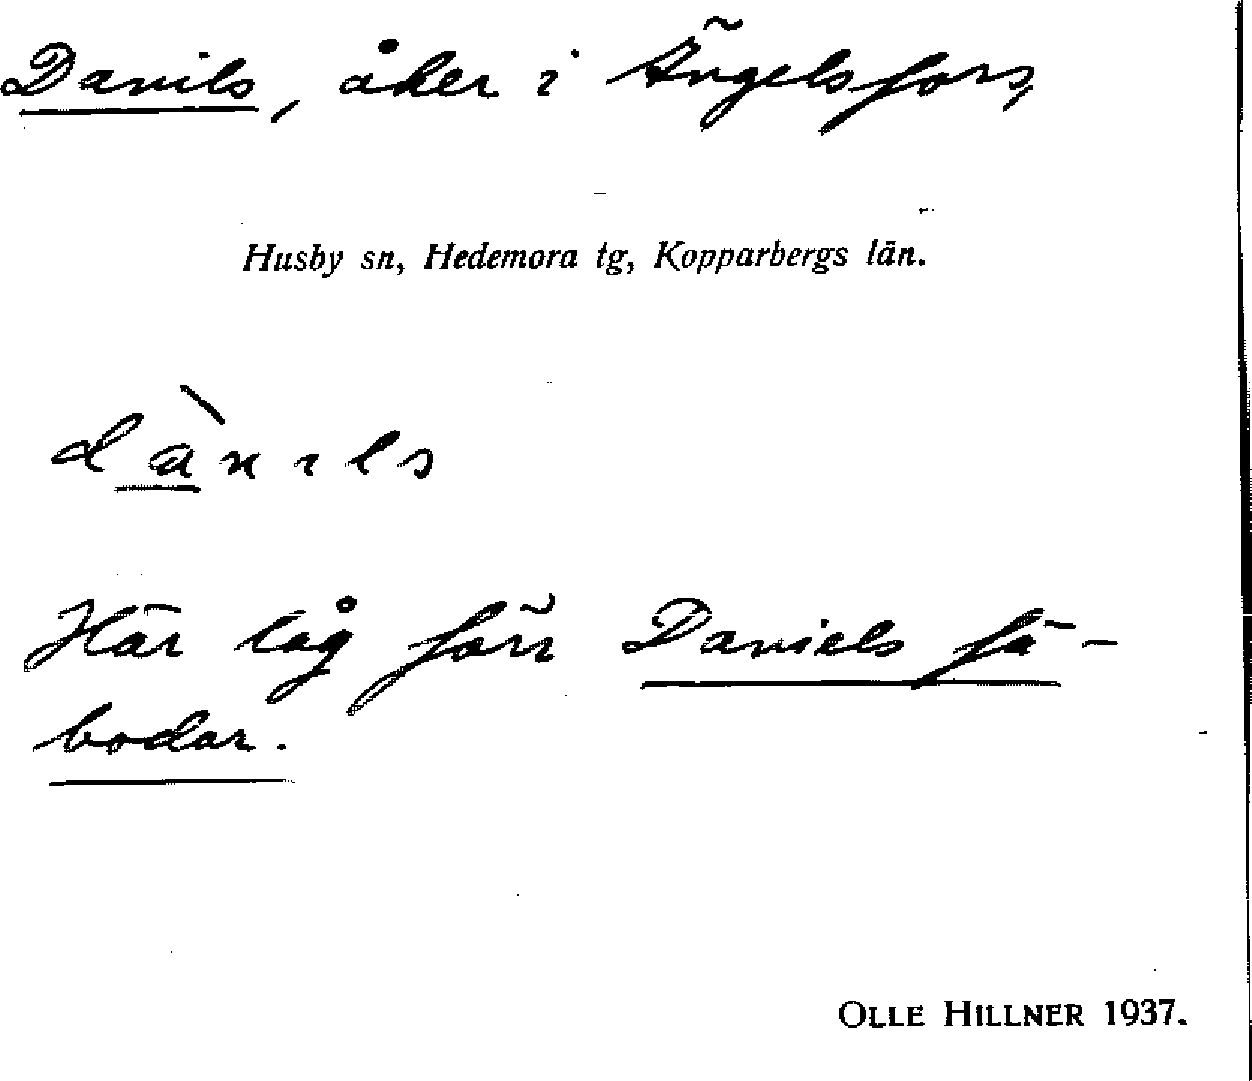 Danils, åker i Ängelsfors,
Husby sn, Hedemora tg, Kopparbergs län.
dànıls
Här låg förr Daniels fä-
bodar.
OLLE HILLNER 1937.